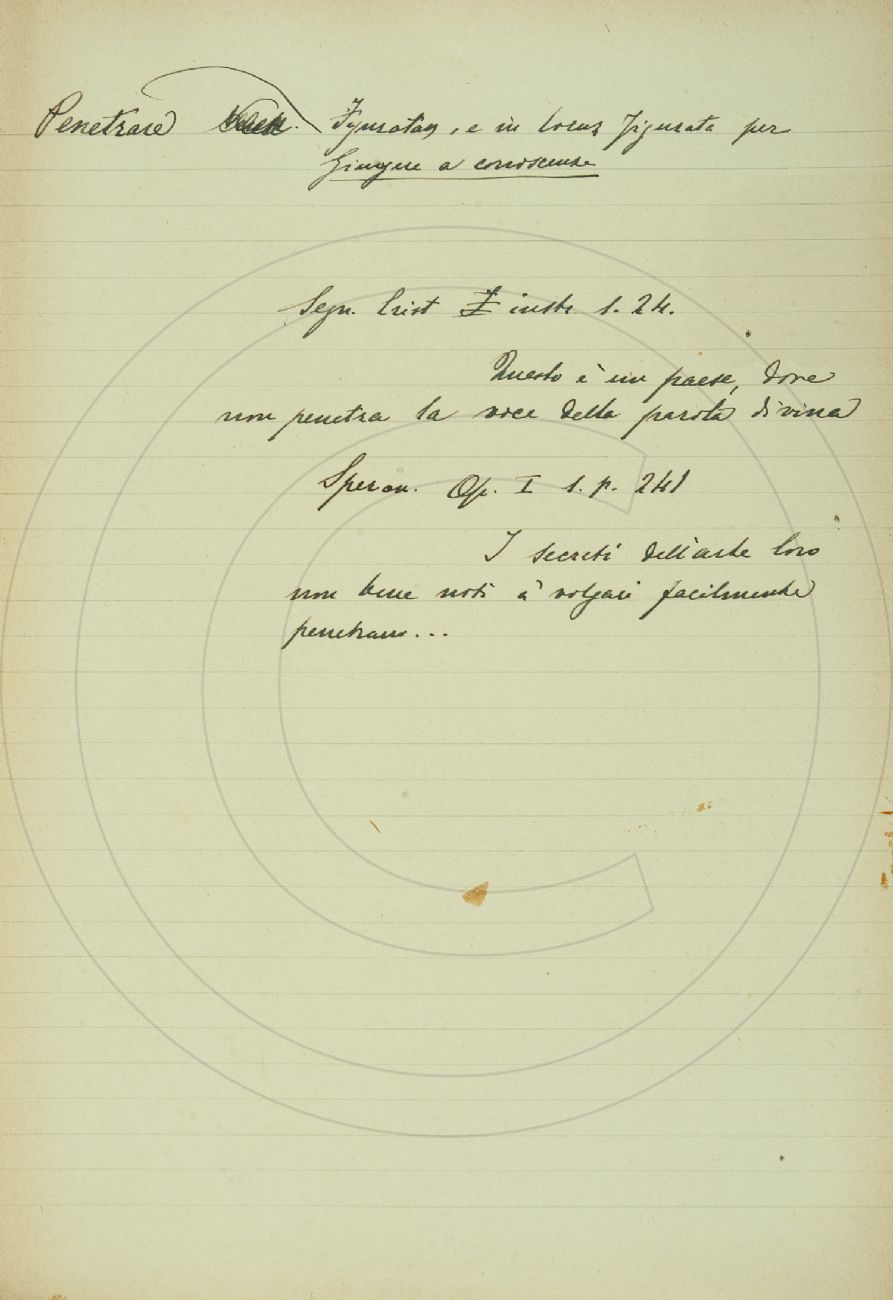 Penetrare Figuratam., e in locuz figurata per
Giungere a conoscenza
Segn. Crist instr. 1. 24.
Questo è un paese, dove
non penetra la voce della parola divina
Speron. Op. I 1. p. 241
I secreti dell'arte loro
non bene noti a' volgari facilmente
penetrano...